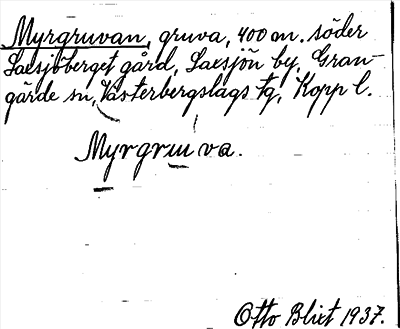 Myrgruvan, gruva, 400 m. söder
Laxsjöberget gård, Laxsjön by, Gran-
gärde sn, Västerbergslags tg, Kopp l.
Myrgruva.
Otto Blixt 1937.